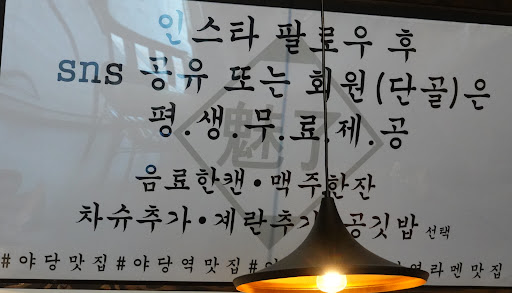 인스타 팔로우 후
sns 공유 또는 회원(단골)은
평.생.무.료.제.공
魅了
음료한캔·맥주한잔
차슈추가·계란추가 공깃밥 선택
#야당맛집#야당역맛집# 라멘맛집